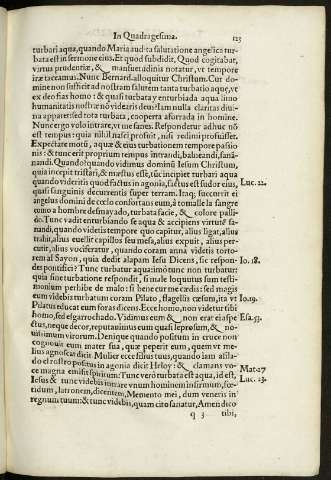 In Quadragesima. 123
turbari aqua, quando Maria audita salutatione angelica turbata
est in sermone eius. Et quod subdidit, Quod cogitabat,
virtus prudentiæ, & mansuetudinis notatur, vt tempore
iræ taceamus. Nunc Bernard. alloquitur Christum. Cur domine
non sufficit ad nostram salutem tanta turbatio aquę, vt
ex deo fias homo: & quasi turbata y enturbiada aqua limo
humanitatis nostræ nō videris deus? Iam nulla claritas diuina
apparet: sed tota turbata, cooperta aforrada in homine.
Nunc ergo volo intrare, vt me sanes. Respondetur adhuc nō
est tempus: quia nihil nasci profuit, nisi redimi profuisset.
Expectate motū, aquæ & eius turbationem tempore passionis:
& tunc erit proprium tempus intrandi, balneandi, sanādi.
Quando? quando vidimus dominū Iesum Christum,
quia incepit tristari, & mœstus esse, sic incipiet turbari aqua
quando videritis quod factus in agonia, factus est sudor eius, Luc. 22.
quasi sanguinis decurrentis super terram. Itaq; succurrit ei
angelus domini de cœlo confortans eum, à tomalle la sangre
como a hombre desmayado, turbata facie, & colore pallido.
Tunc vadit enturbiando se & accipiens virtutē sanandi,
quando videtis tempore quo capitur, alius ligat, alius
trahit, alius euellit capillos seu mesa, alius expuit, alius percutit,
alius vociferatur, quando coram anna videtis tortorem
al Sayon, quia dedit alapam Iesu Dicens, sic respondes Io. 18.
pontifici? Tunc turbatur aqua: imò tunc non turbatur:
quia sine turbatione respondit, si male loquutus sum testimonium
perhibe de malo: si bene cur me cædis: sed magis
eum videbis turbatum coram Pilato, flagellis cæsum, ita vt Io. 19.
Pilatus educat eum foras dicens. Ecce homo, non videtur tibi
homo, sed elgarrochado. Vidimus eum & non erat ei aspectus, Esa. 53.
neque decor, reputauimus eum quasi leprosum, & nouissimum
virorum. Denique quando positum in cruce non
cognouit eum mater sua quæ peperit eum, quem vt melius
agnoscat dicit Mulier ecce filius tuus, quando iam afilado
el rostro positus in agonia dicit Heloy: & clamans voce Mat. 27
magna emisit spiritum: Tunc verò turbata est aqua, id est,
Iesus & tunc videbis intrare vnum hominem infirmum, fœtidum, Luc. 23.
latronem, dicentem, Memento mei, dum veneris in
regnum tuum: & tunc videbis, quam cito sanatur, Amen dico
q 3 tibi,